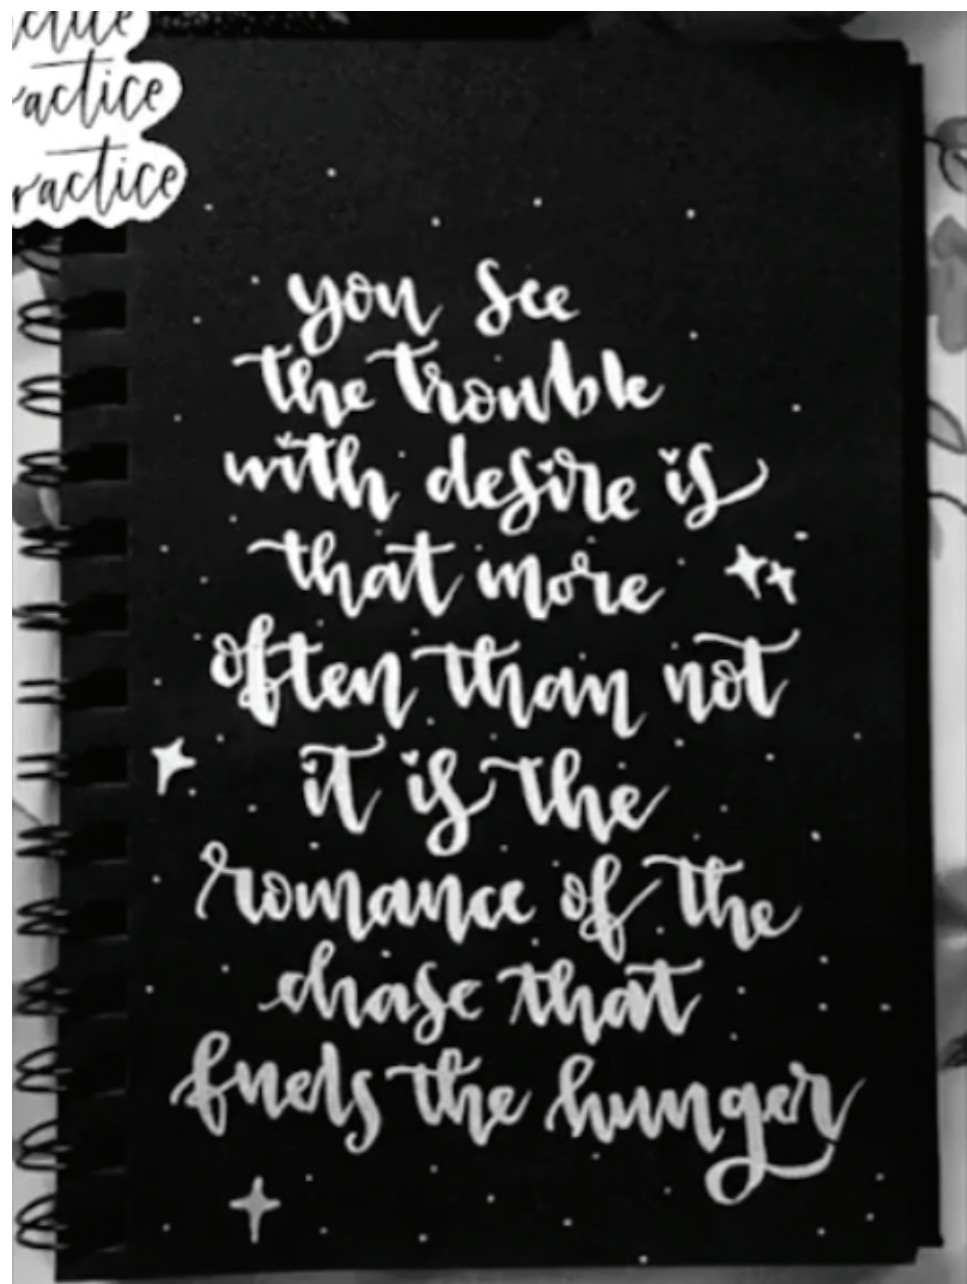 actice
ractice
you see
the trouble
with desire is
that more
often than not
it is the
romance of the
chase that
fuels the hunger